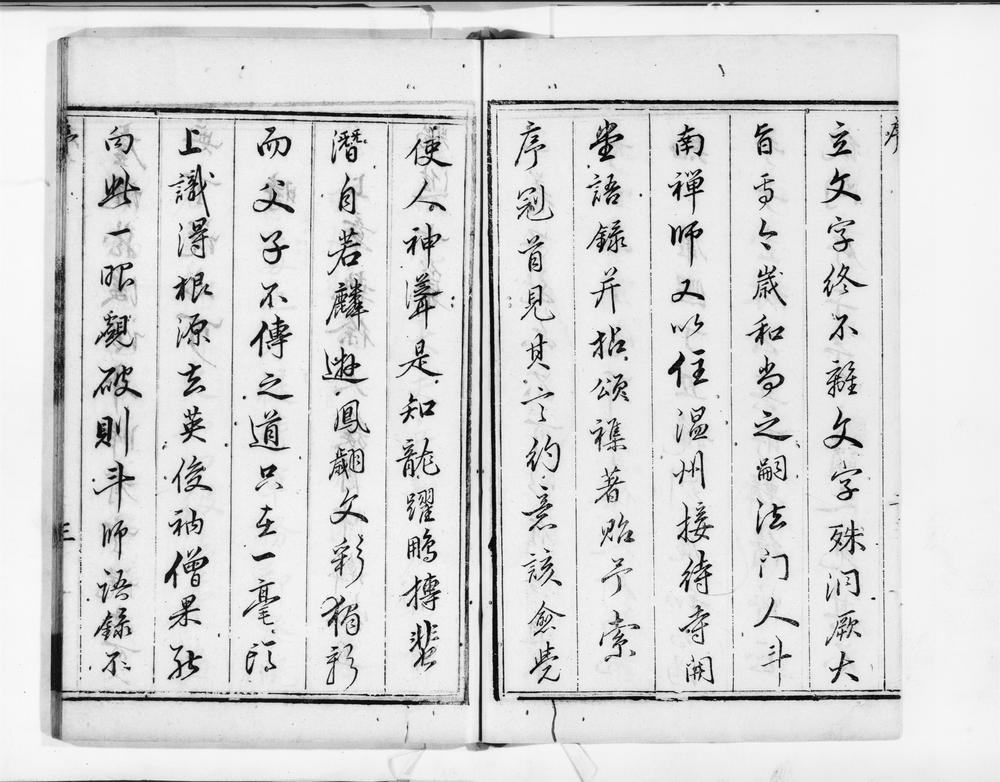 序
立文字終不離文字殊洞厥大
旨焉今歲和尚之嗣法門人斗
南禪師又以住溫州接待寺開
堂語錄并拈頌襍著貽予索
序冠首見其言約意該愈覺
使人神溝是知龍躍鵬摶斐
潛自若麟遊鳳翽文彩猶新
而父子不傳之道只在一毫頭
上識得根源去英俊衲僧果能
向此一眼覷破則斗師語錄不
三